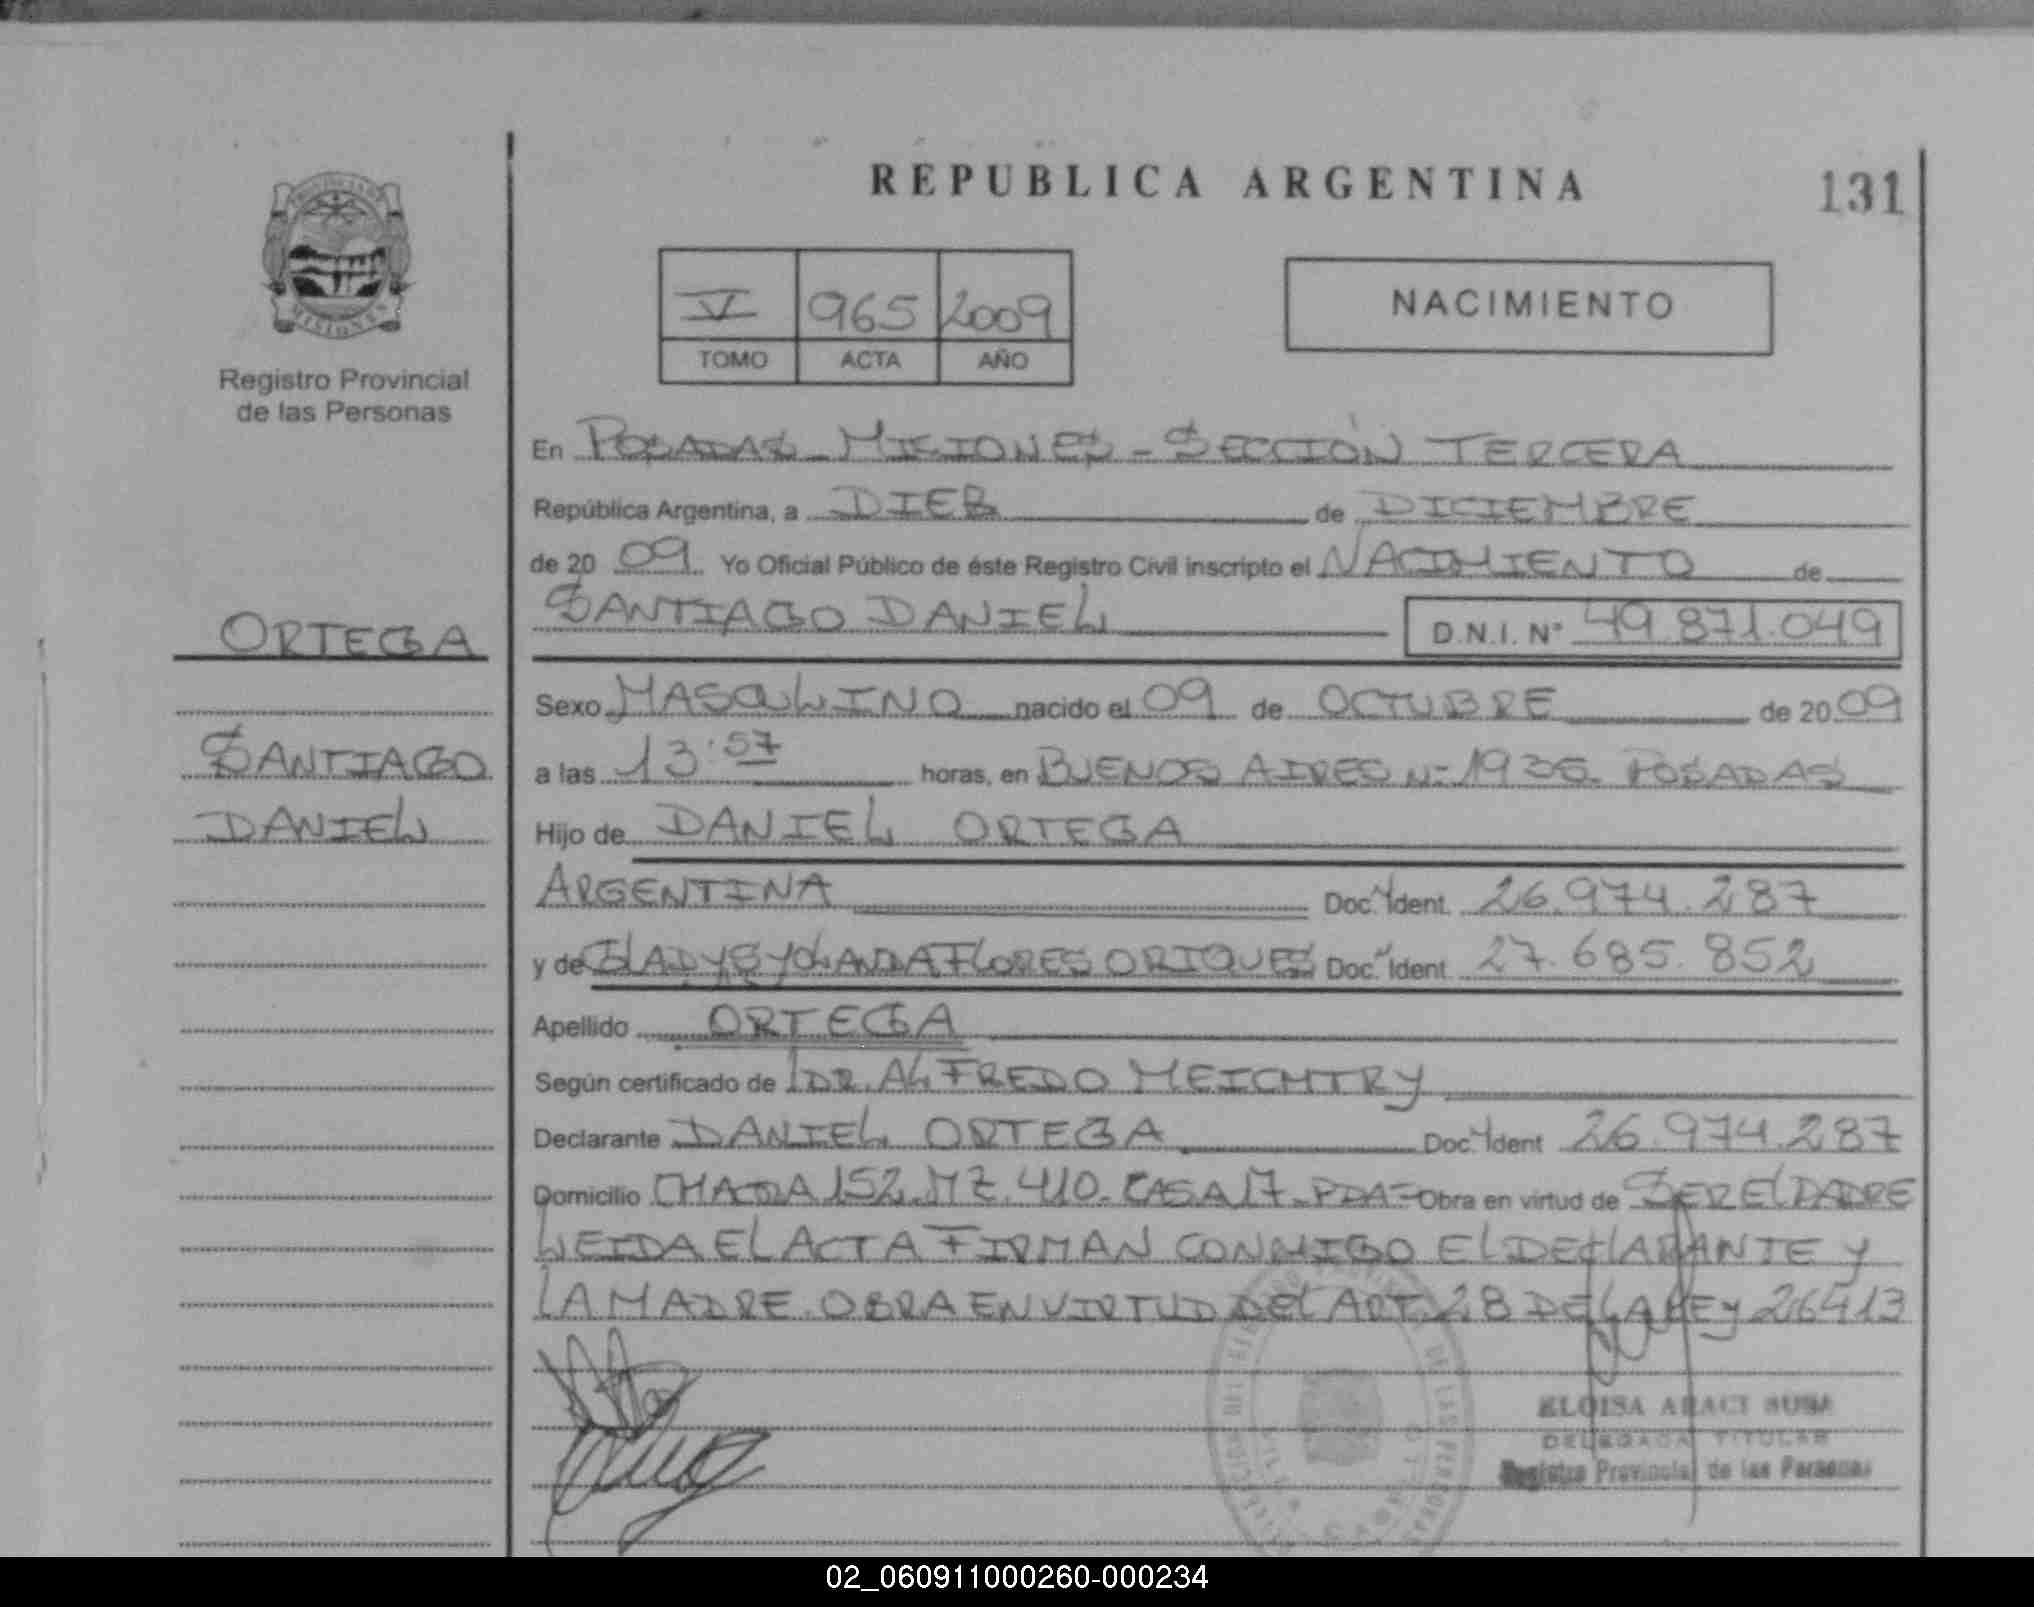 REPUBLICA ARGENTINA
131
PROVINCIA DE MISIONES
Registro Provincial
de las Personas
V 965 2009
TOMO ACTA AÑO
NACIMIENTO
En POSADAS - MISIONES - SECCIÓN TERCERA
República Argentina, a DIEZ de DICIEMBRE
de 20 09 Yo Oficial Público de éste Registro Civil inscripto el NACIMIENTO de
SANTIAGO DANIEL D.N.I. N° 49.871.049
ORTEGA
SANTIAGO
DANIEL
Sexo MASCULINO nacido el 09 de OCTUBRE de 20 09
a las 13:57 horas, en BUENOS AIRES N° 1935. POSADAS
Hijo de DANIEL ORTEGA
ARGENTINA Doc. Ident. 26.974.287
y de GLADYS YOLANDA FLORES ORIQUES Doc. Ident. 27.685.852
Apellido ORTEGA
Según certificado de DR. ALFREDO MEICHTRY
Declarante DANIEL ORTEGA Doc. Ident 26.974.287
Domicilio CHACRA 152. MZ. 410. CASA 17. PDAS Obra en virtud de SER EL PADRE
LEIDA EL ACTA FIRMAN CONMIGO EL DECLARANTE Y
LA MADRE. OBRA EN VIRTUD DEL ART. 28 DE LA LEY 26413
ELOISA ARACI
DELEGADA TITULAR
Registro Provincial de las Personas
02_060911000260-000234